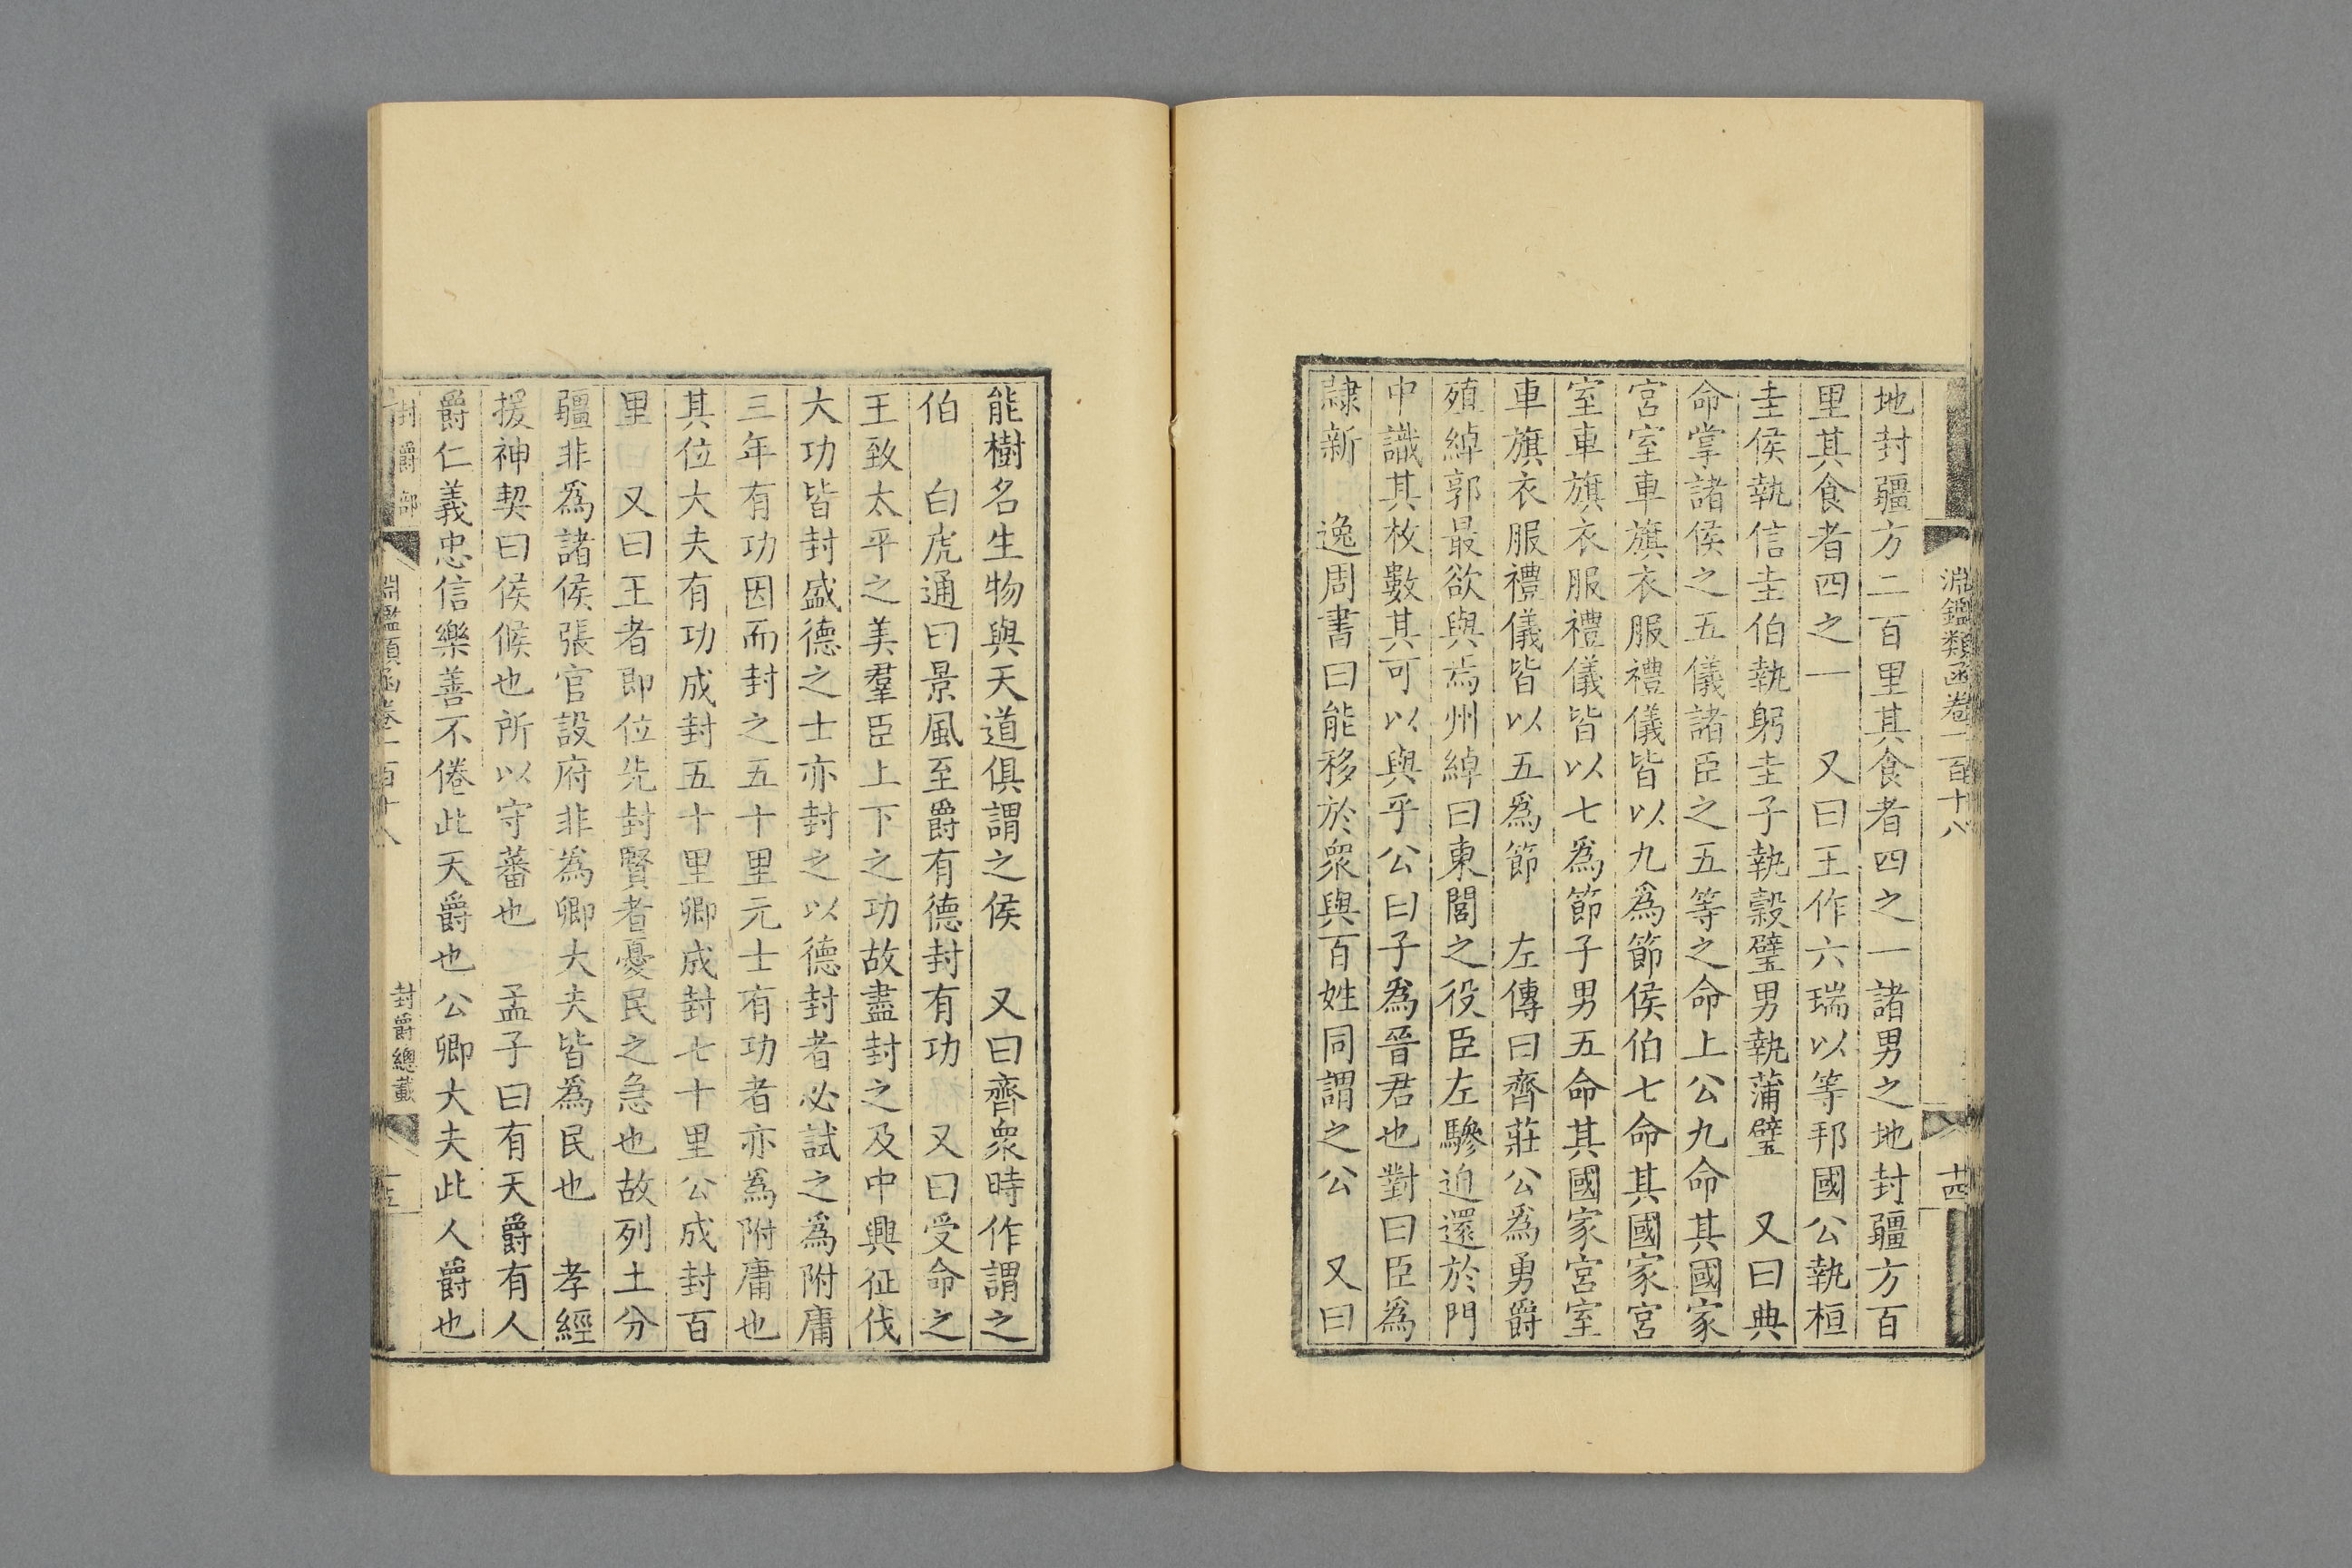 淵鑑類函卷一百十八
十四
地封疆方二百里其食者四之一諸男之地封疆方百
里其食者四之一　又曰王作六瑞以等邦國公執桓
圭侯執信圭伯執躬圭子執穀璧男執蒲璧　又曰典
命掌諸侯之五儀諸臣之五等之命上公九命其國家
宮室車旗衣服禮儀皆以九爲節侯伯七命其國家宮
室車旗衣服禮儀皆以七爲節子男五命其國家宮室
車旗衣服禮儀皆以五爲節　左傳曰齊莊公爲勇爵
殖綽郭最欲與焉州綽曰東閭之役臣左驂迫還於門
中識其枚數其可以與乎公曰子爲晉君也對曰臣爲
隸新　逸周書曰能移於衆與百姓同謂之公　又曰
能樹名生物與天道俱謂之侯　又曰齊衆時作謂之
伯　白虎通曰景風至爵有德封有功　又曰受命之
王致太平之美羣臣上下之功故盡封之及中興征伐
大功皆封盛德之士亦封之以德封者必試之爲附庸
三年有功因而封之五十里元士有功者亦爲附庸也
其位大夫有功成封五十里卿成封七十里公成封百
里　又曰王者即位先封賢者憂民之急也故列土分
疆非爲諸侯張官設府非爲卿大夫皆爲民也　孝經
援神契曰侯候也所以守蕃也　孟子曰有天爵有人
爵仁義忠信樂善不倦此天爵也公卿大夫此人爵也
封爵部
淵鑑類函卷一百十八
封爵總載
十五